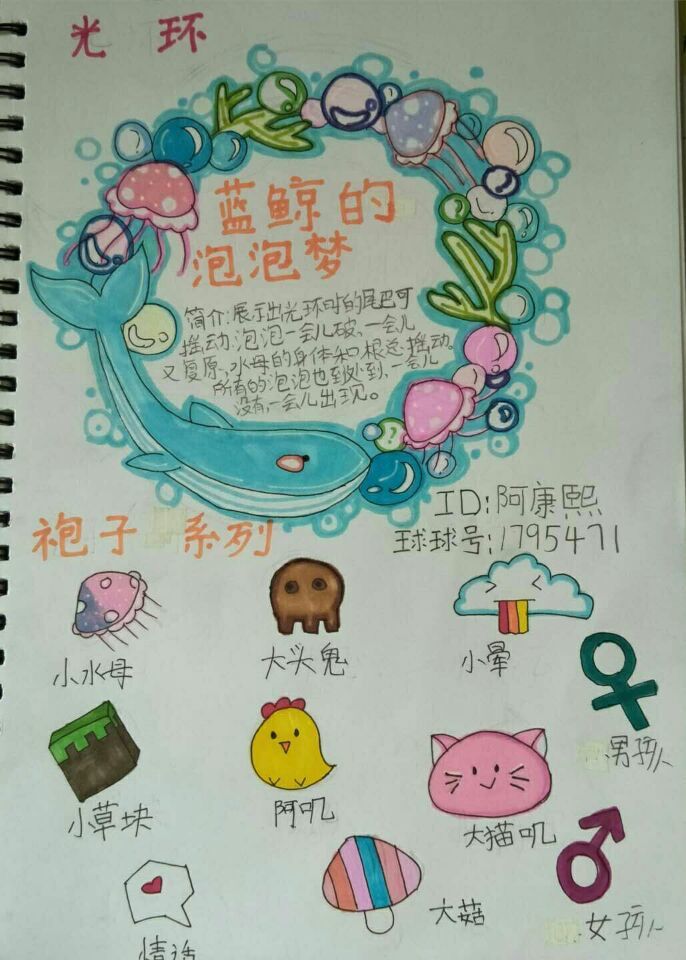 光环
蓝鲸的
泡泡梦
简介:展示出光环时的尾巴可
摇动,泡泡一会儿破、一会儿
又复原、水母的身体和根总摇动。
所有的泡泡也到处到,一会儿
没有,一会儿出现。
ID:阿康熙
球球号:1795471
袍子 系列
小水母
大头鬼
小晕
男孩人
小草块
阿叽
大猫叽
情话
大菇
女孩人